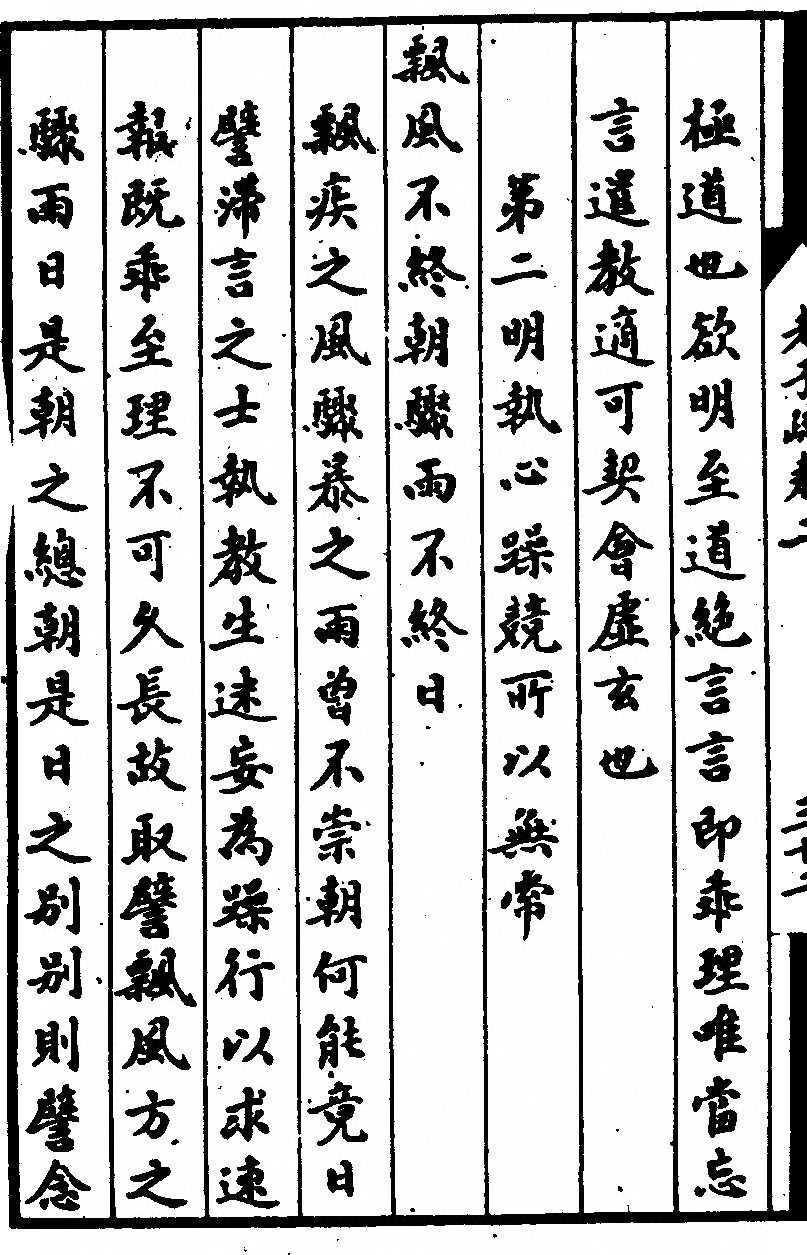 極道也欲明至道絶言言即乖理唯當忘
言遣教適可契會虛玄也
第二明執心躁競所以無常
飄風不終朝驟雨不終日
飄疾之風驟暴之雨曾不崇朝何能竟日
譬滯言之士執教生迷妄為躁行以求速
報既乖至理不可久長故取譬飄風方之
驟雨日是朝之總朝是日之別別則譬念